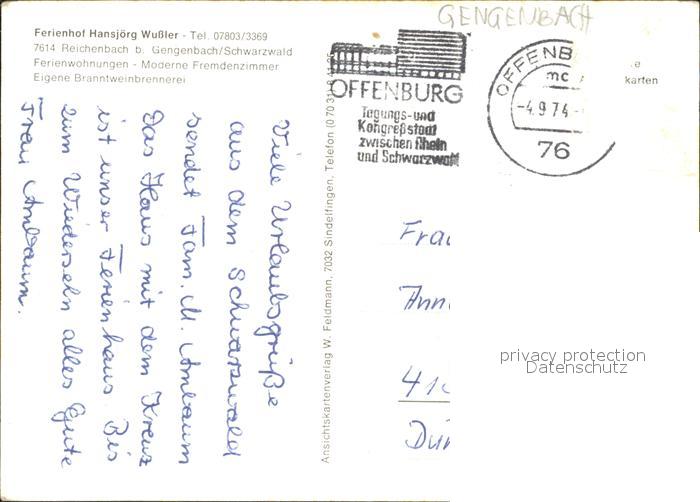 GENGENBACH
Ferienhof Hansjörg Wußler - Tel. 07803/3369
7614 Reichenbach b. Gengenbach/Schwarzwald
Ferienwohnungen - Moderne Fremdenzimmer
Eigene Branntweinbrennerei
OFFENBURG
Tagungs-und
Kongreßstadt
zwischen Rhein
und Schwarzwald
OFFENB
mc
-4.9.74-
76
e
karten
Viele Urlaubsgrüße
aus dem Schwarzwald
sendet Fam. M. Ambaum
Das Haus mit dem Kreuz
ist unser Ferienhaus. Bis
zum Wiedersehn alles Gute
Frau Ambaum.
Ansichtskartenverlag W. Feldmann, 7032 Sindelfingen, Telefon (07031)
Frau
Ann
41
Dui
privacy protection
Datenschutz